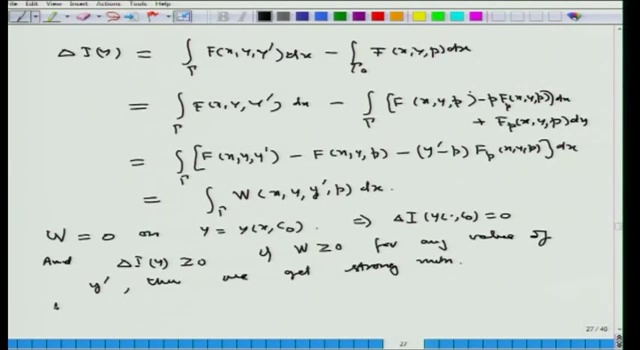 View Insert Actions Tools Help
B
Δ I(y) = ∫_Γ F(x,y,y')dx − ∫_Γ₀ F(x,y,p)dx
= ∫_Γ F(x,y,y') dx − ∫_Γ [F(x,y,p) − p F_p(x,y,p)]dx
+ F_p(x,y,p)dy
= ∫_Γ [F(x,y,y') − F(x,y,p) − (y'−p) F_p(x,y,p)] dx
= ∫_Γ W(x,y,y',p) dx.
W = 0 on y = y(x,c₀). ⇒ Δ I(y(·,c₀) = 0
And Δ I(y) ≥ 0 if W ≥ 0 for any value of
y', then we get strong min.
27 / 40
27